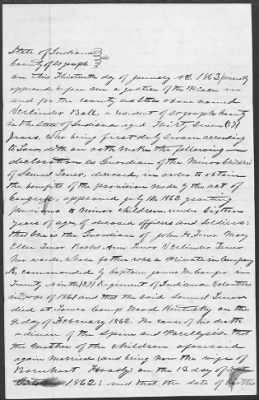 State of Indiana
County of St Joseph
on this Thirteenth day of January AD 1863 personally
appeared before me a Justice of the Peace in
and for the county and State above named
Verlinder Ball, a resident of St Joseph County
in the State of Indiana aged Thirty Seven (37)
Years. Who being first duly sworn according
to Law, doth on oath make the following
declaration as Guardian of the Minor Children
of Samuel Inver, deceased, in order to obtain
the benefits of the provision made by the act of
Congress, approved July 14 1862, granting
pensions to Minor Children, under sixteen
years of age, of deceased officers and Soldiers:
that she is the Guardian of John H. Mary
Ellen Ann
her wards, whose father was a Private in company
K commanded by Captain James M.
Twenty ninth (29) Regiment of Indiana Volunteers
in war of 1861 and that the said Samuel
died at Camp Wood Kentucky on the
day of February 1862. The cause of his death
disease of the Spine and that
the Mother of the children aforesaid
again Married (and being now the wife of
) on the 12 day of
1862; and that the date of